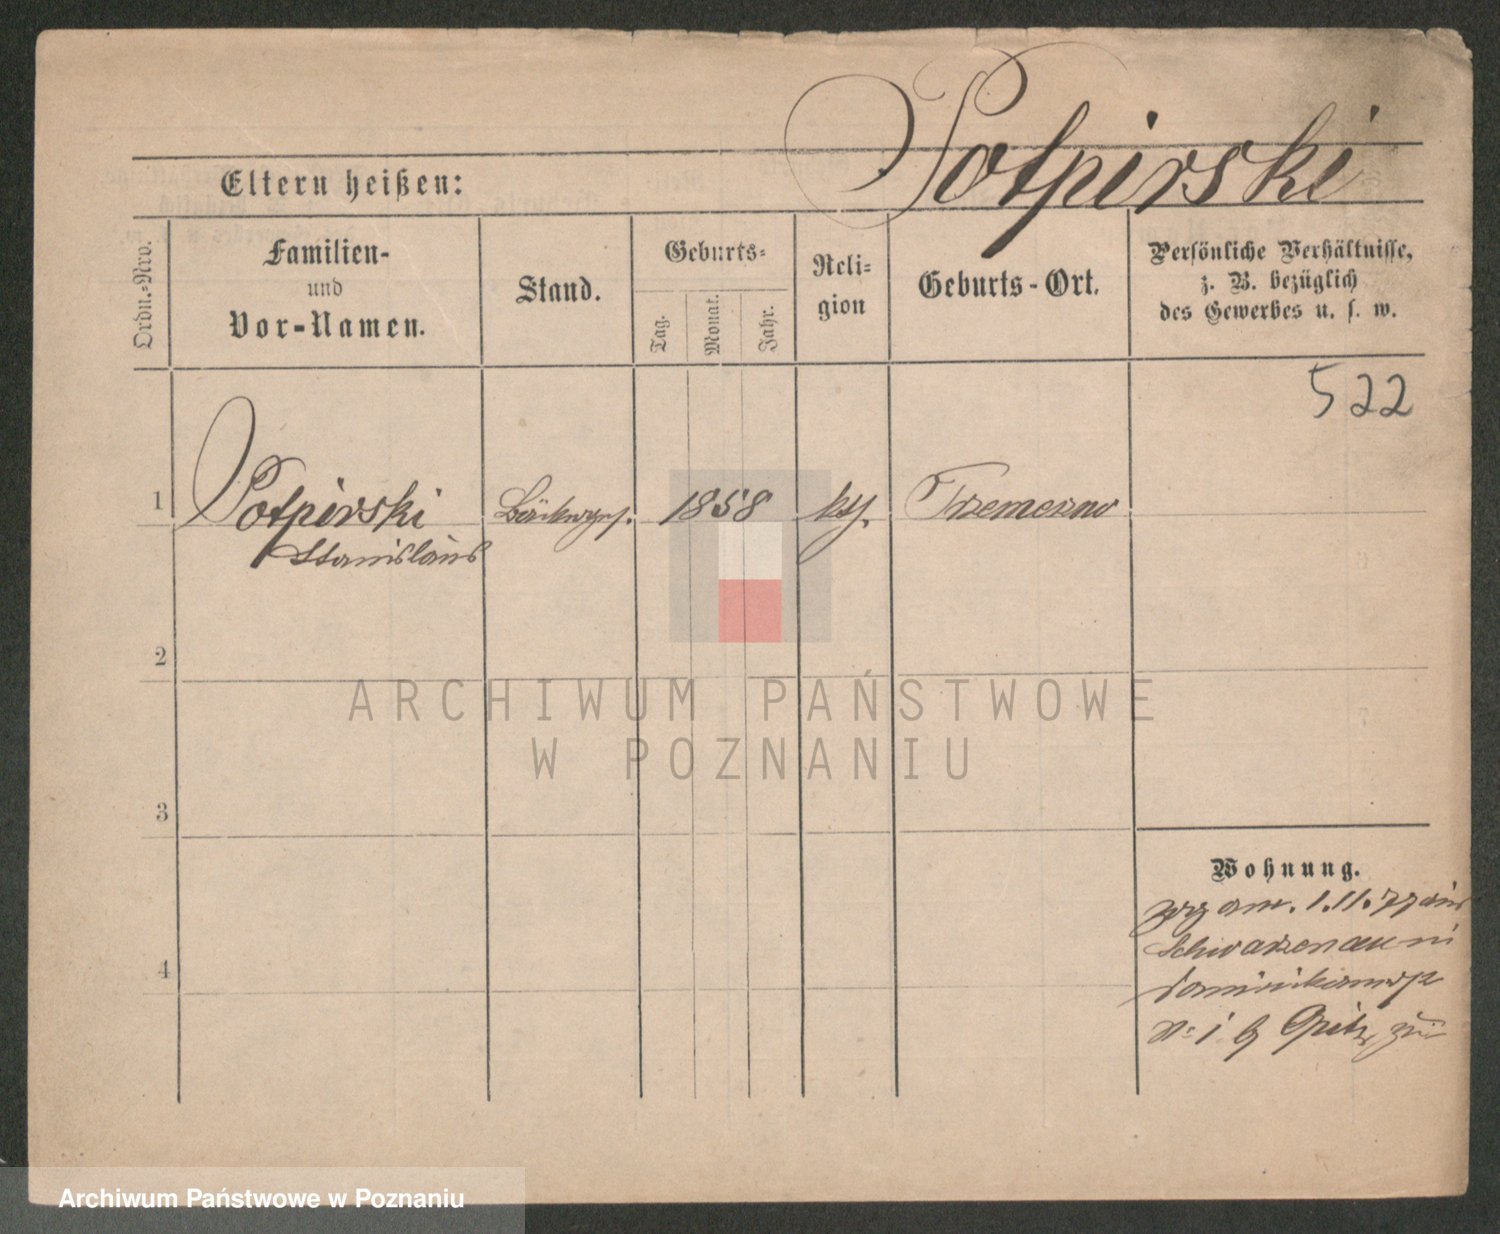 Potpirski
Eltern heißen:
Ordn.-Nro.
Familien-
und
Vor-Namen.
Stand.
Geburts-
Tag.
Monat.
Jahr.
Reli-
gion
Geburts-Ort.
Persönliche Verhältnisse,
z. B. bezüglich
des Gewerbes u. s. w.
522
1 Potpirski 1858 kth. Trzemeszno
Stanislaus
2
3
4
Wohnung.
am 1.11.77 aus
Schwarzenau in
N: 1 b Opitz zu
ARCHIWUM PAŃSTWOWE
W POZNANIU
Archiwum Państwowe w Poznaniu